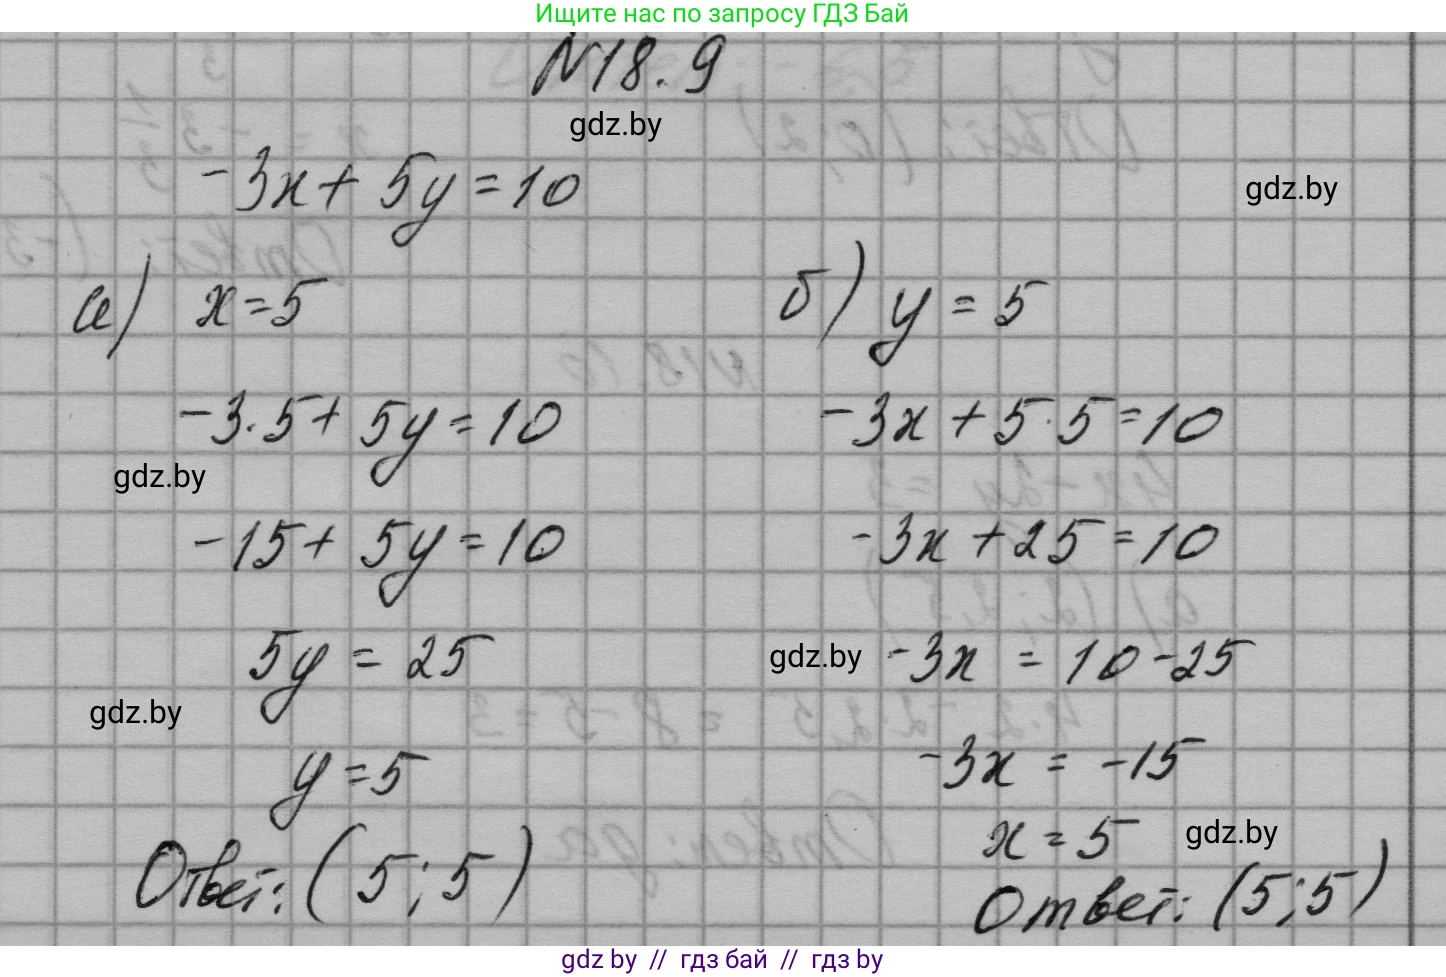 Ищите нас по запросу ГДЗ Бай
N18.9
gdz.by
-3x + 5y = 10
gdz.by
а) x = 5
-3·5 + 5y = 10
gdz.by
-15 + 5y = 10
5y = 25
gdz.by
y = 5
Ответ: (5; 5)
б) y = 5
-3x + 5·5 = 10
-3x + 25 = 10
gdz.by
-3x = 10 - 25
-3x = -15
x = 5
gdz.by
Ответ: (5; 5)
gdz by // гдз бай // гдз by